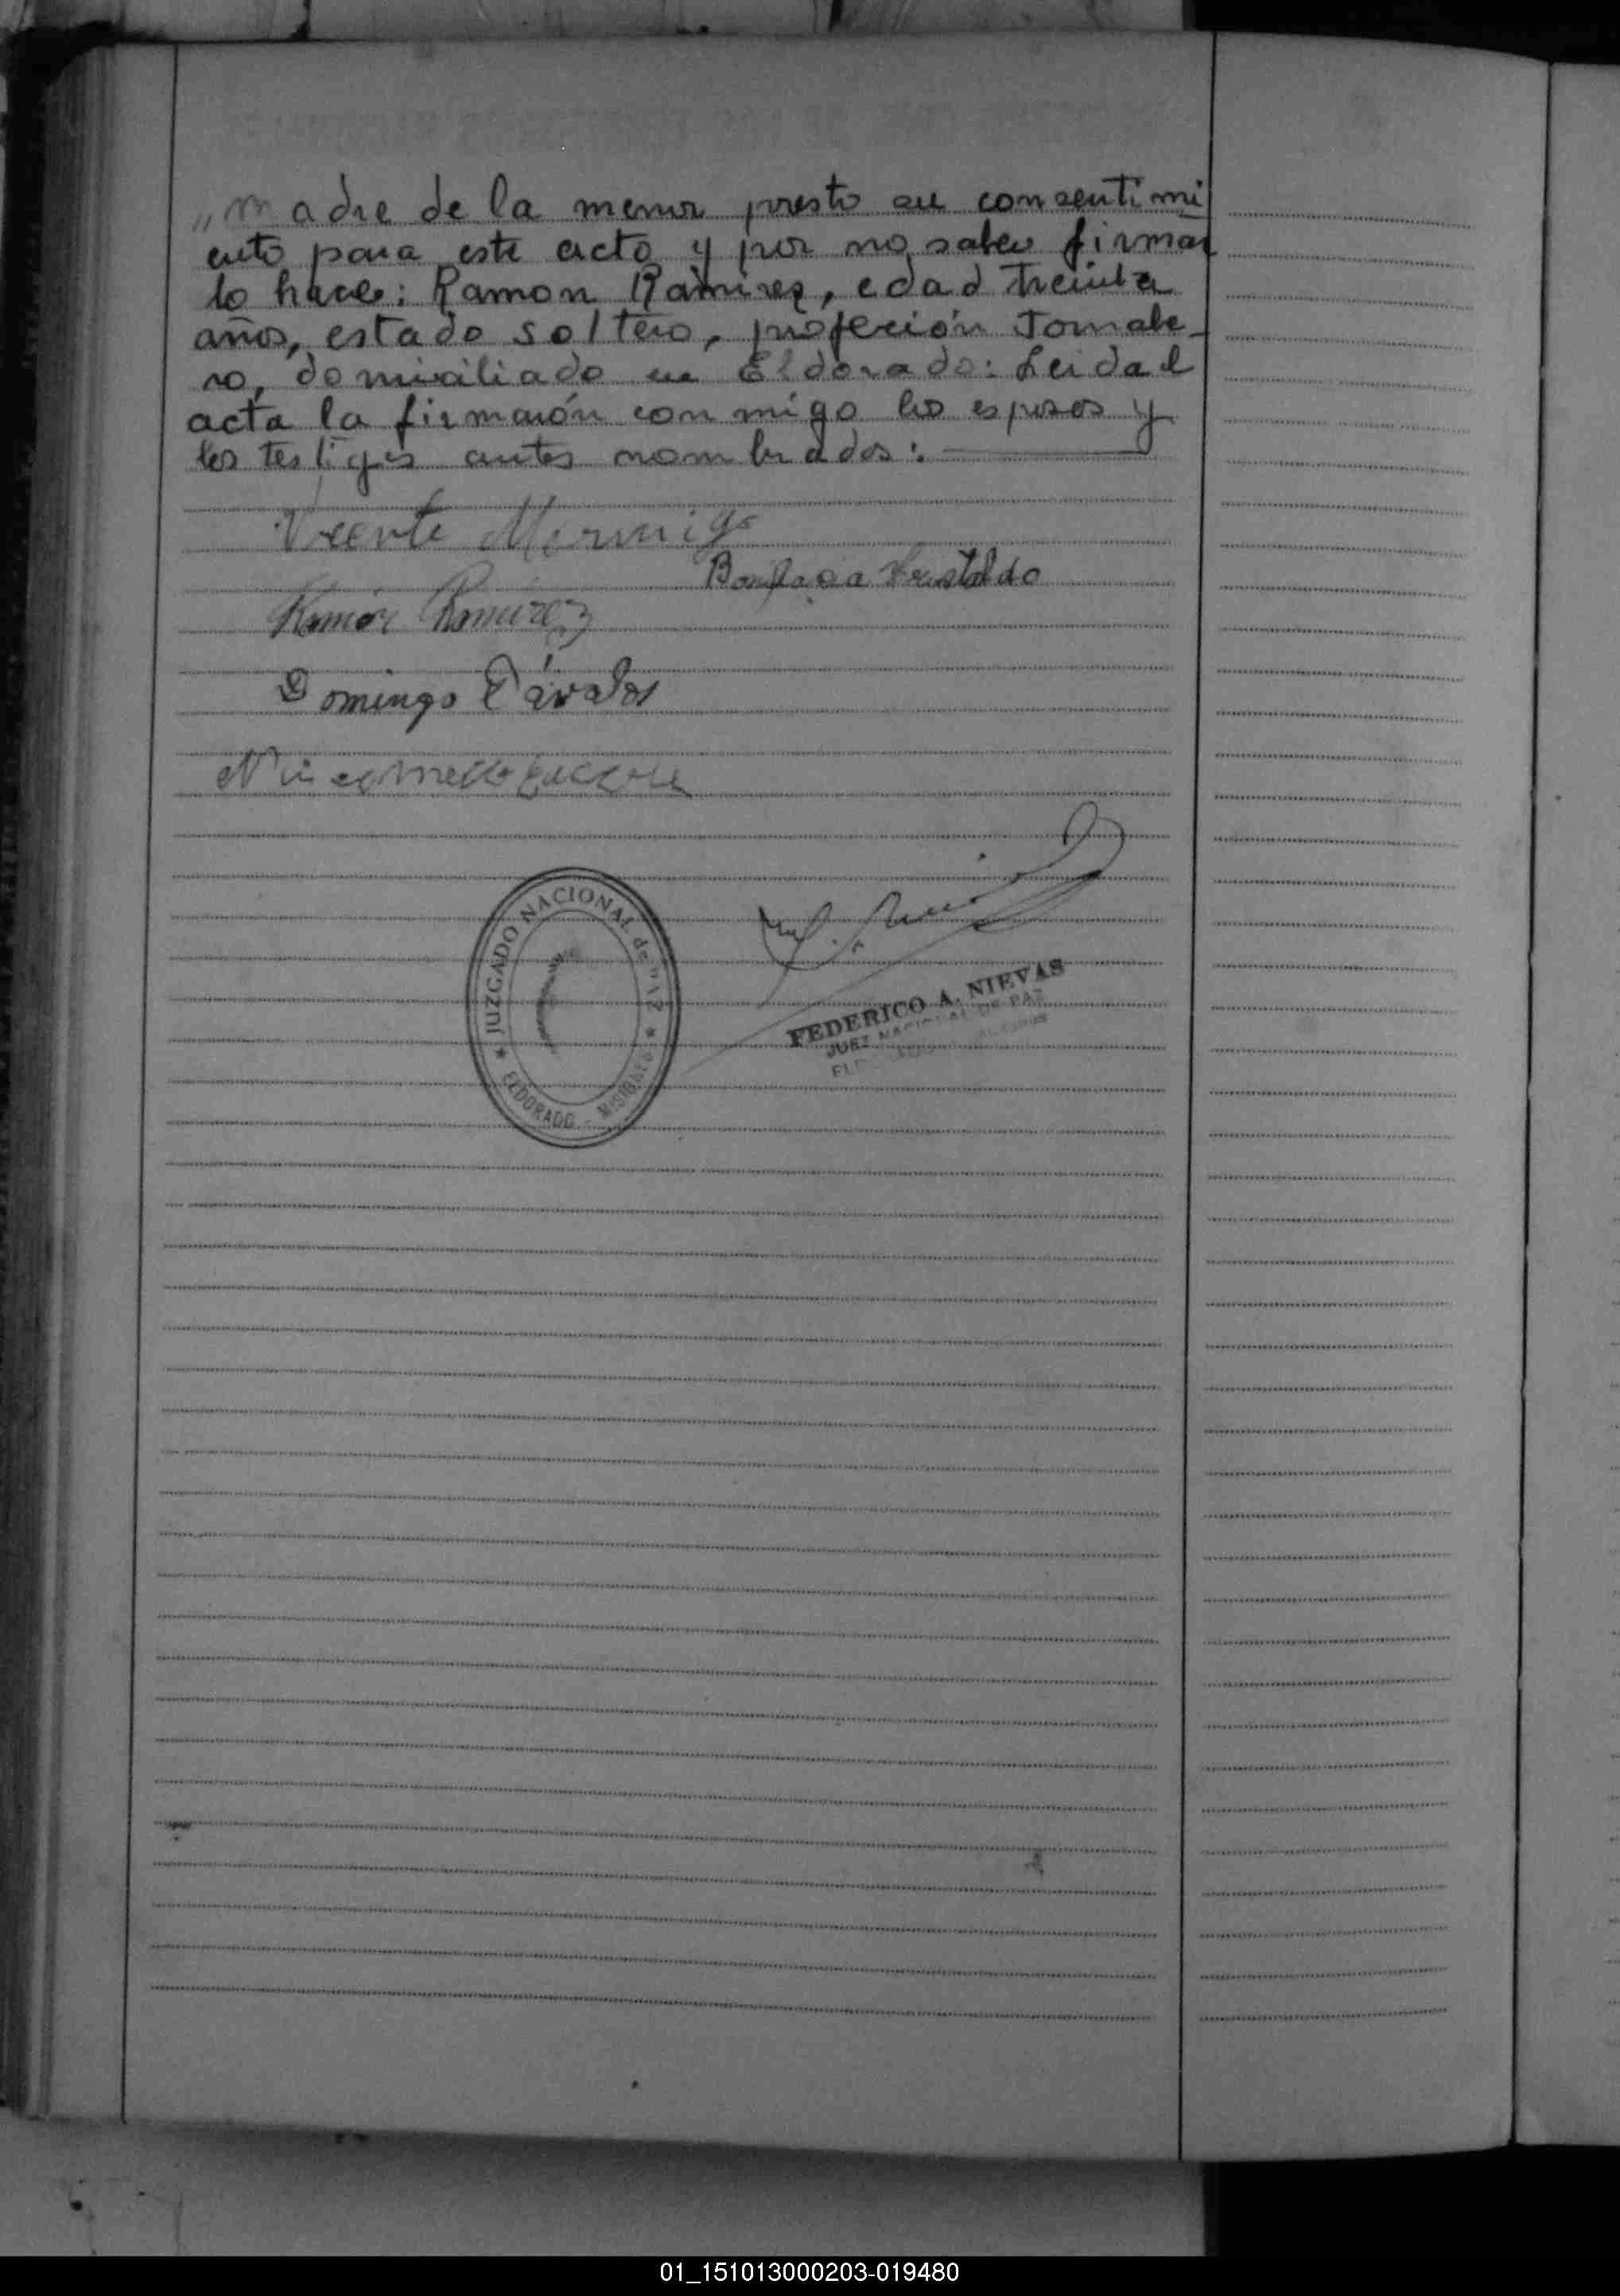 „madre de la menor presto su consentimi
ento para este acto y por no saber firmar
lo hace: Ramon Ramirez, edad treinta
años, estado soltero, profeción Jornale-
ro, domiciliado en Eldorado: Leida el
acta la firmarón conmigo los esposos y
los testigos antes nombrados:
Vicente
Ramón Ramirez
Domingo
JUZGADO NACIONAL de PAZ
★ ELDORADO - MISIONES ★
FEDERICO A. NIEVAS
JUEZ NACIONAL DE PAZ
01_151013000203-019480